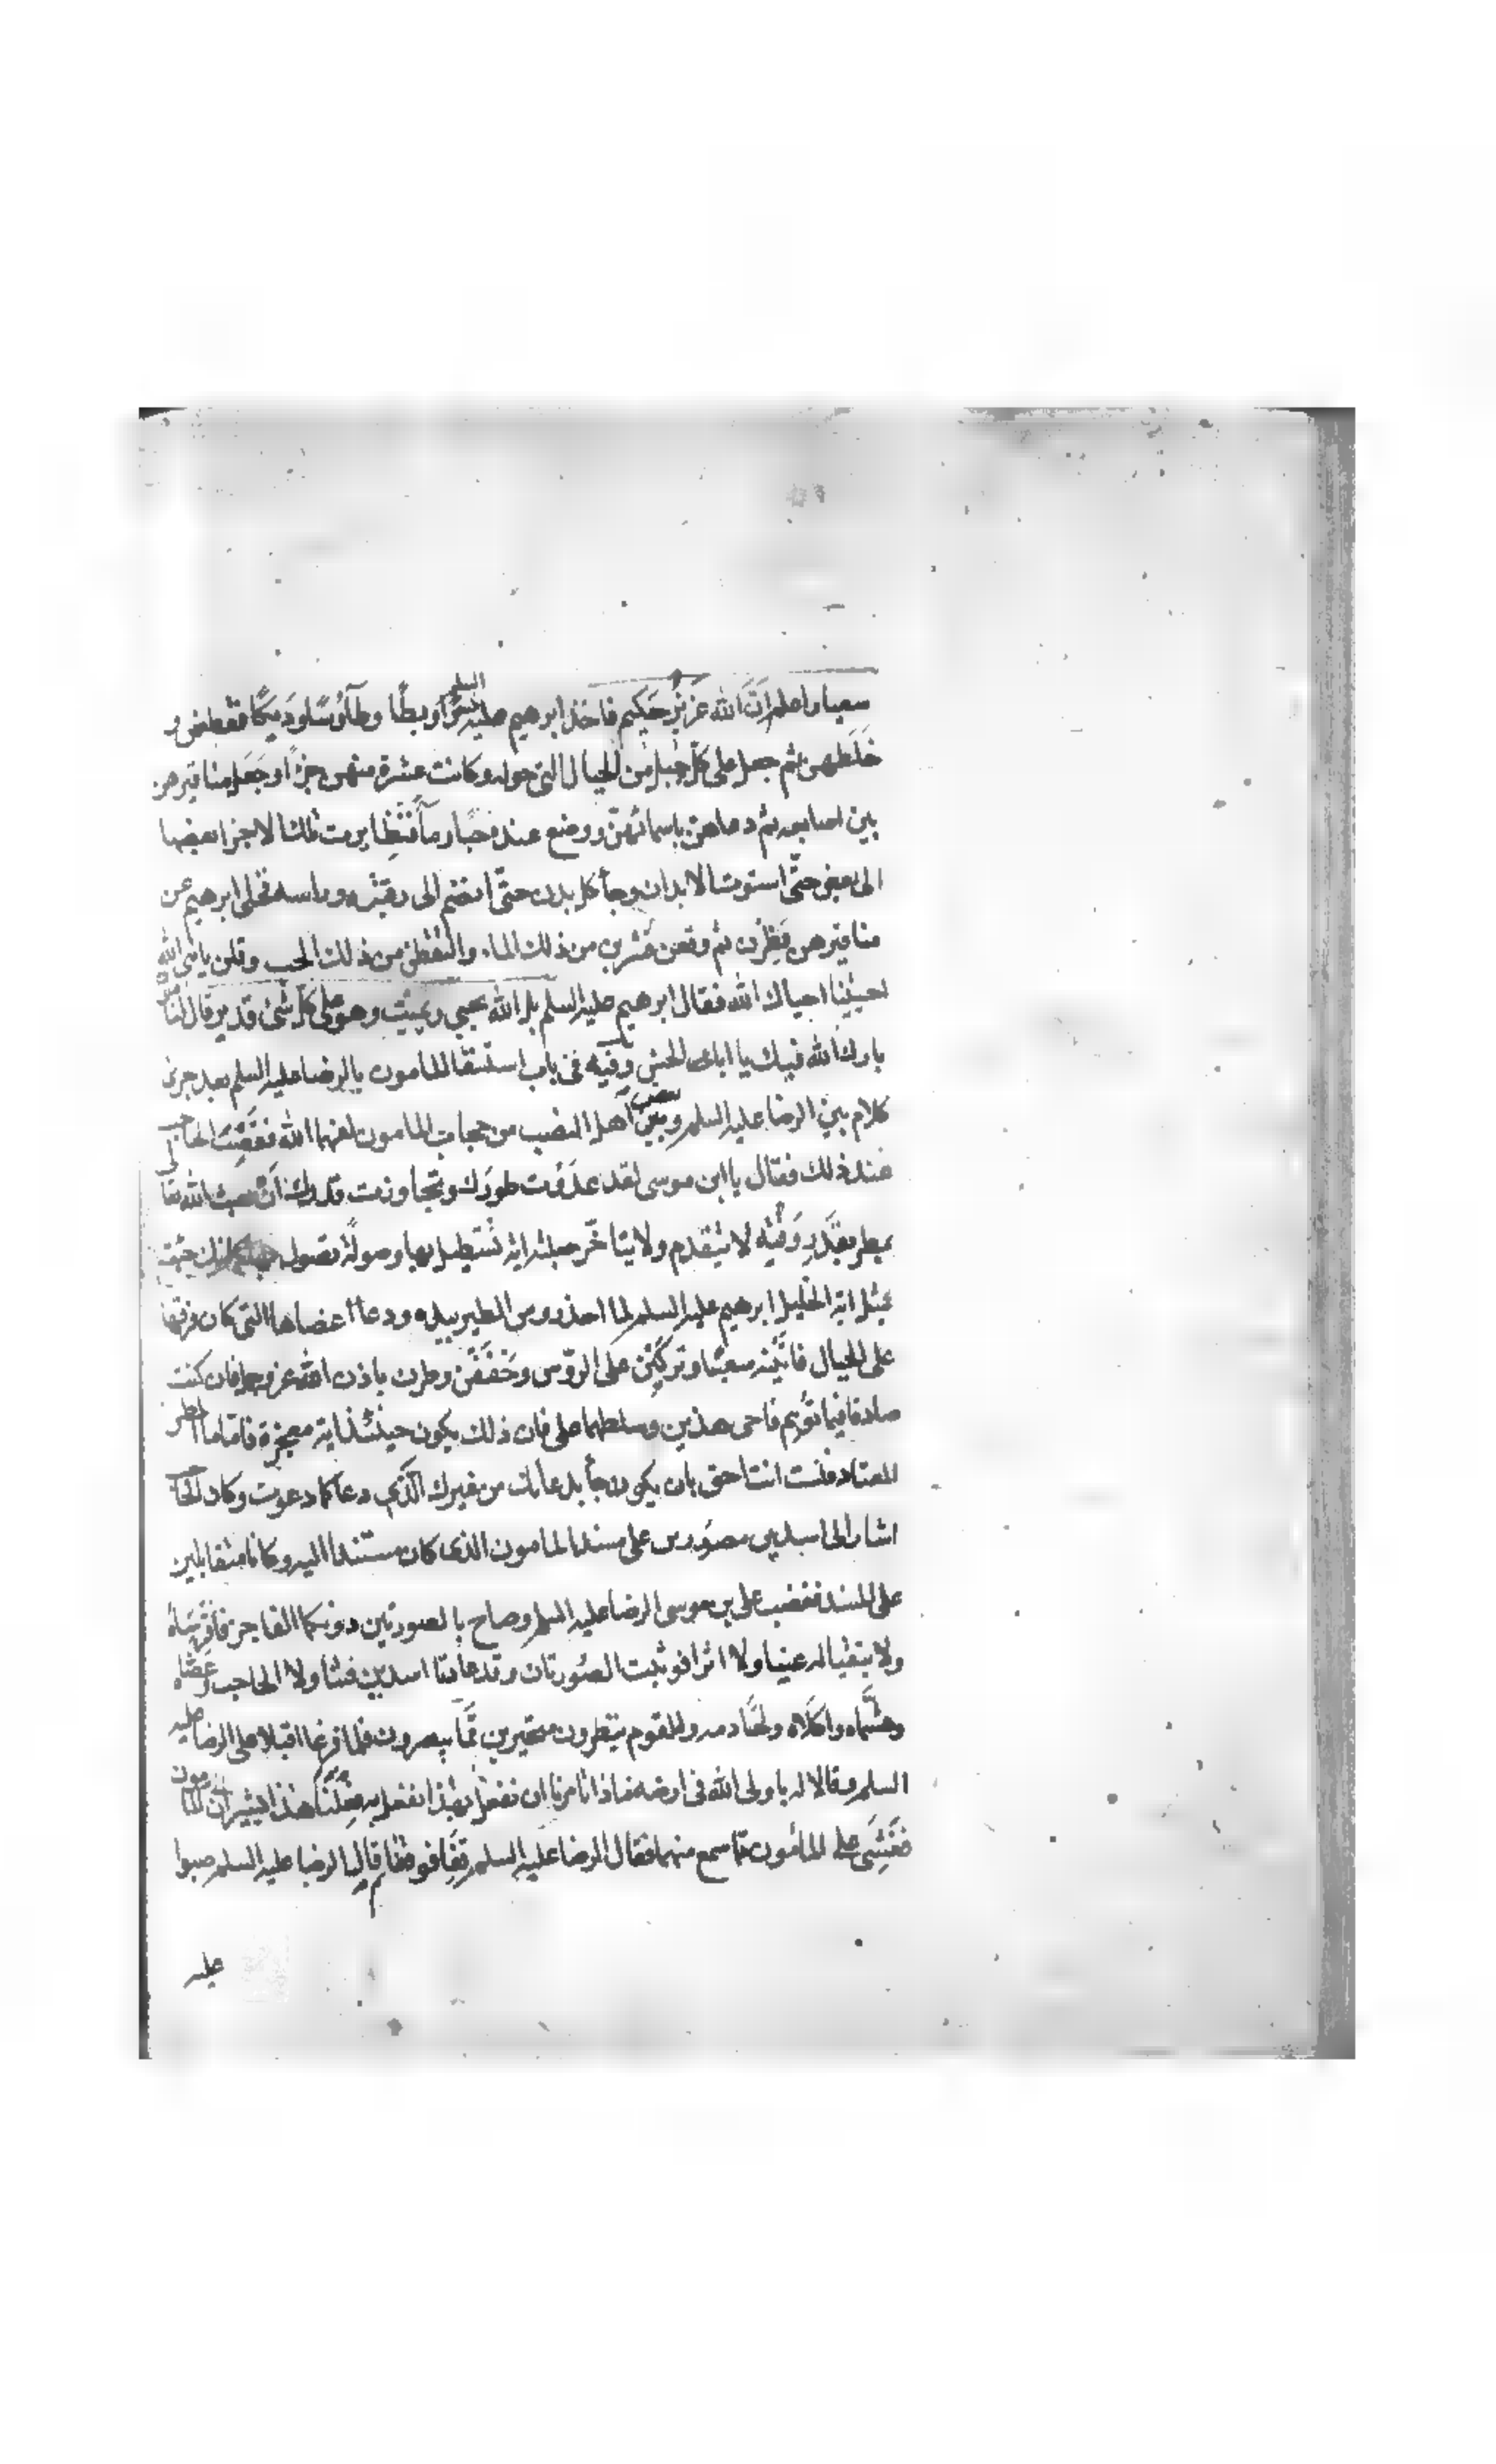 سعيا واعلم اَنَّ الله عَزيزٌ حَكيم فاخذ ابرهيم عليه السلم نَسرًا وبطًّا وطآؤسًا وديكًا فقطعهن و
خَلَطهن ثم جعل على كلّ جبل من الجبال التي حوله وكانت عشرة منهن جزًا وجَعَل مناقيرهن
بين اصابعه ثم دعاهن باسمائهنّ ووضع عنده حبًّا ومآءً فتطايرت تلك الاجزا بعضها
الى بعض حتّى استوت الابدان وجآء كل بدن حتّى انضم الى رقبته وراسه فخلى ابرهيم عن
مناقيرهن فطِرْن ثم وقعن فشربن من ذلك الماء والتقطن من ذلك الحب وقلن يا نبي الله
احييتنا احياك الله فقال ابرهيم عليه السلم بل الله يحيي ويميت وهو على كلّ شئ قدير قال المامون
بارك الله فيك يا ابا الحسن وفيه في باب استسقا المامون بالرضا عليه السلم بعد جرى
كلام بين الرضا عليه السلم وبين بعض اهل النصب من حجاب المامون لعنهما الله فغضب الحاجب
عند ذلك فقال يا ابن موسى لقد عدَوْت طورَك وتجاوزت قدرك اَنْ بعث الله تعالى
بمطر مقدّر وَقْتُه لا يتقدم ولا يتاخّر جعلته اية تستطيل بها وصولة تصول بها كانك جئت
بمثل اية الخليل ابرهيم عليه السلم لما اخذ روس الطير بيده ودعا اعضاها التي كان فرقها
على الجبال فاتَيْنه سعيًا وتركّبْن على الروس وخفَقْن وطرن باذن الله عز وجل فان كنت
صادقا فيما توهم فاحى هذين وسلطهما على فان ذلك يكون حينئذ اية معجزة فاما المطر
المعتاد فلست انت احق بان يكون جآء بدعائك من غيرك الّذي دعا كما دعوت وكان الحاجب
اشار الى اسدين مصوّرين على مسند المامون الذى كان مستندا اليه وكانا متقابلين
على المسند فغضب على بن موسى الرضا عليه السلم وصاح بالصورتين دونكما الفاجر فافرساه
ولا تبقيا له عينا ولا اثرا فوثبت الصّورتان وقد عادتا اسدين فتناولا الحاجب وعضّاه
وهشّماه واكلاه ولحسا دمه والقوم ينظرون متحيرين ممّا يبصرون فلما فرغا اقبلا على الرضا عليه
السلم وقالا له يا ولى الله فى ارضه ماذا تامرنا ان نفعل بهذا نفعل به فِعْلَنا هذا يشيران الى المامون
فغُشِىَ على المامون ممّا سمع منهما فقال الرضا عليه السلم قفا فوقفا ثم قال الرضا عليه السلم صبوا
عليه